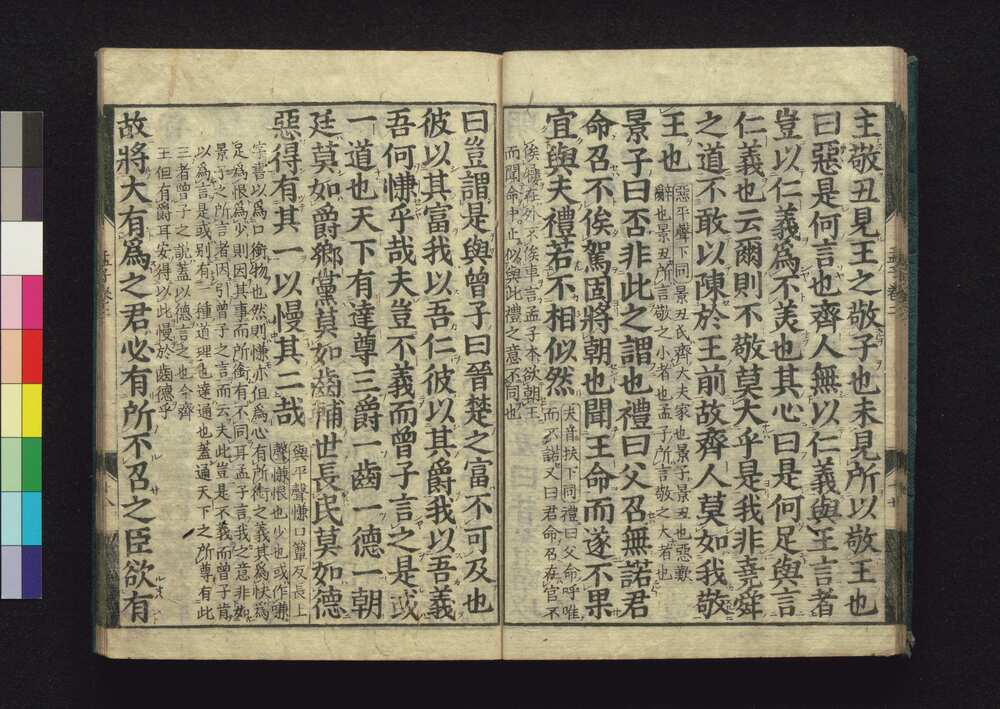 主敬丑見王之敬子也未見所以敬王也
曰惡是何言也齊人無以仁義與王言者
豈以仁義爲不美也其心曰是何足與言
仁義也云爾則不敬莫大乎是我非堯舜
之道不敢以陳於王前故齊人莫如我敬
王也
惡平聲下同景丑氏齊大夫家也景子景丑也惡歎
辭也景丑所言敬之小者也孟子所言敬之大者也
景子曰否非此之謂也禮曰父召無諾君
命召不俟駕固將朝也聞王命而遂不果
宜與夫禮若不相似然
夫音扶下同禮曰父命呼唯
而不諾又曰君命召在官不
俟屨在外不俟車言孟子本欲朝王
而聞命中止似與此禮之意不同也
曰豈謂是與曾子曰晉楚之富不可及也
彼以其富我以吾仁彼以其爵我以吾義
吾何慊乎哉夫豈不義而曾子言之是或
一道也天下有達尊三爵一齒一德一朝
廷莫如爵鄉黨莫如齒輔世長民莫如德
惡得有其一以慢其二哉
與平聲慊口簟反長上
聲慊恨也少也或作嗛
字書以爲口銜物也然則慊亦但爲心有所銜之義其爲快爲
足爲恨爲少則因其事而所銜有不同耳孟子言我之意非如
景子之所言者因引曾子之言而云夫此豈是不義而曾子肯
以爲言是或別有一種道理也達通也蓋通天下之所尊有此
三者曾子之說蓋以德言之也今齊
王但有爵耳安得以此慢於齒德乎
故將大有爲之君必有所不召之臣欲有
孟子卷二